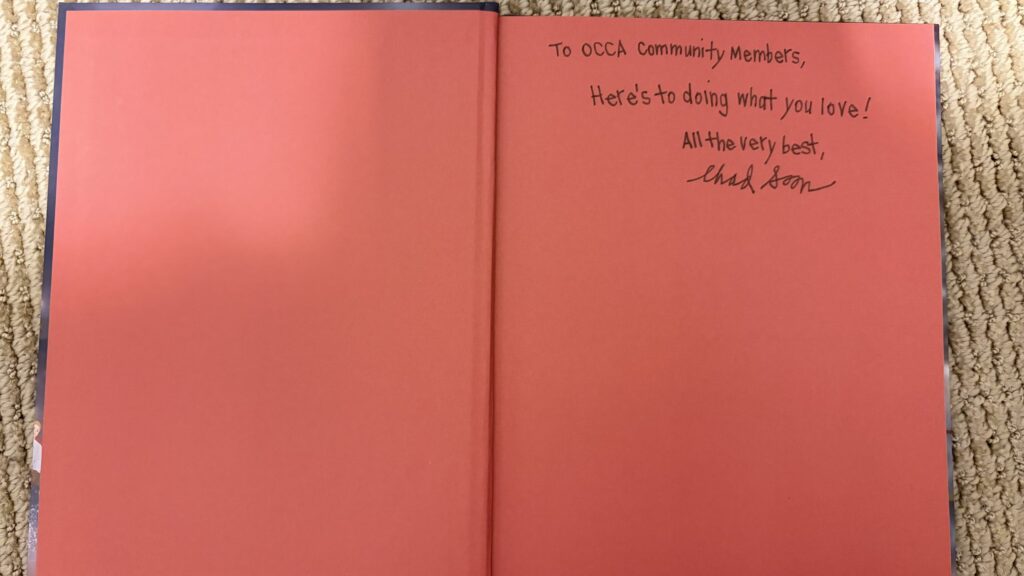 To OCCA Community Members,
Here's to doing what you love!
All the very best,
Chad Soon